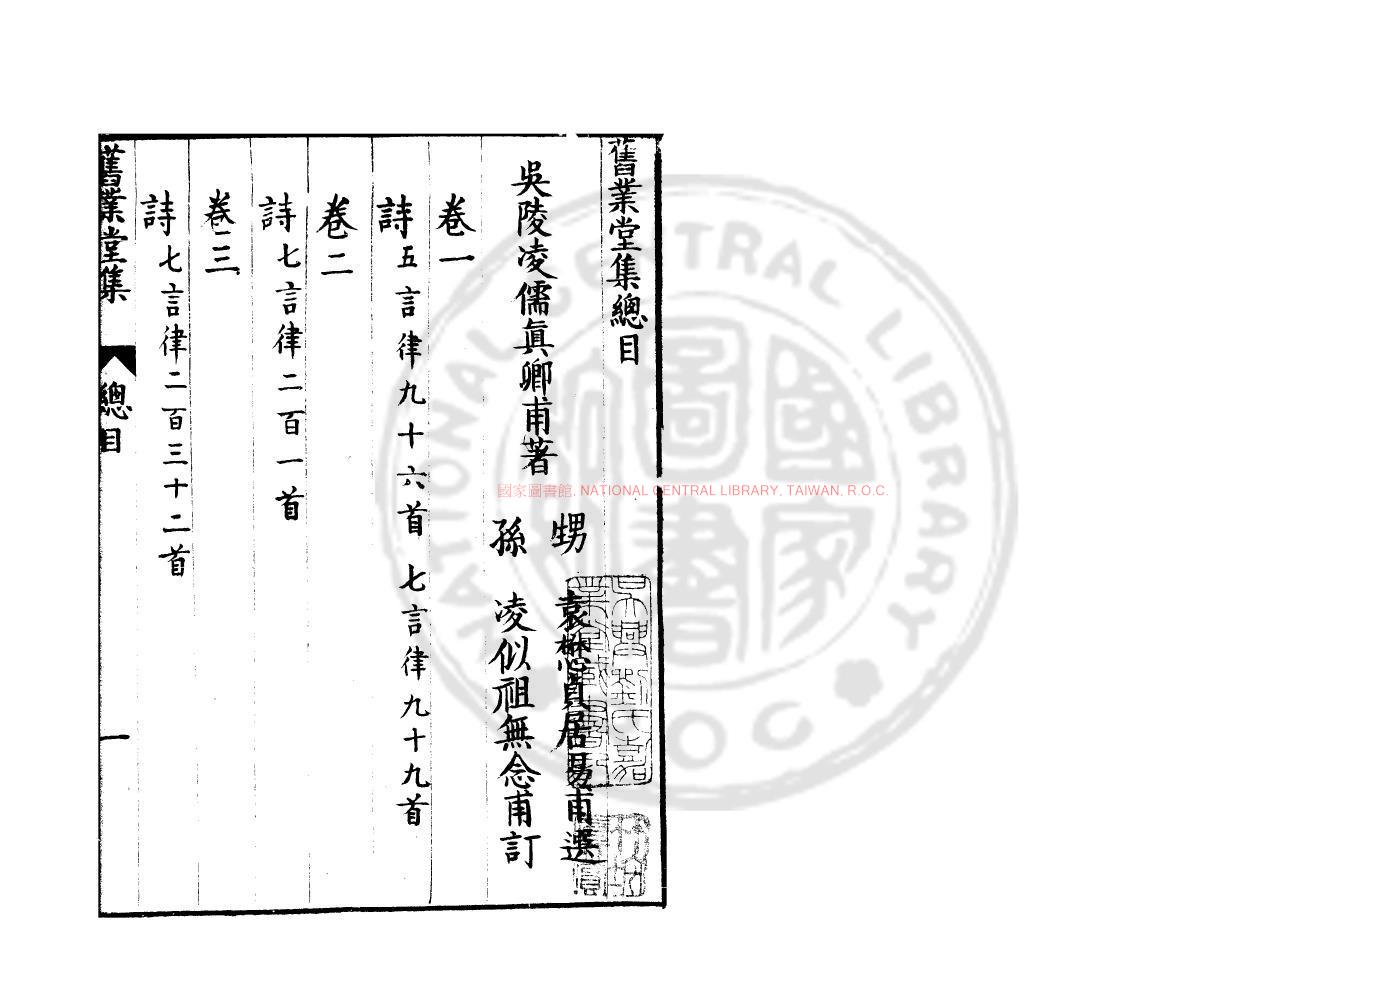 舊業堂集總目
吳陵凌儒眞卿甫著
甥 袁懋貞居易甫選
孫 凌似祖無念甫訂
卷一
詩 五言律九十六首 七言律九十九首
卷二
詩 七言律二百一首
卷三
詩 七言律二百三十二首
舊業堂集 總目 一
國家圖書館, NATIONAL CENTRAL LIBRARY, TAIWAN, R.O.C.
NATIONAL CENTRAL LIBRARY
ROC
國家圖書